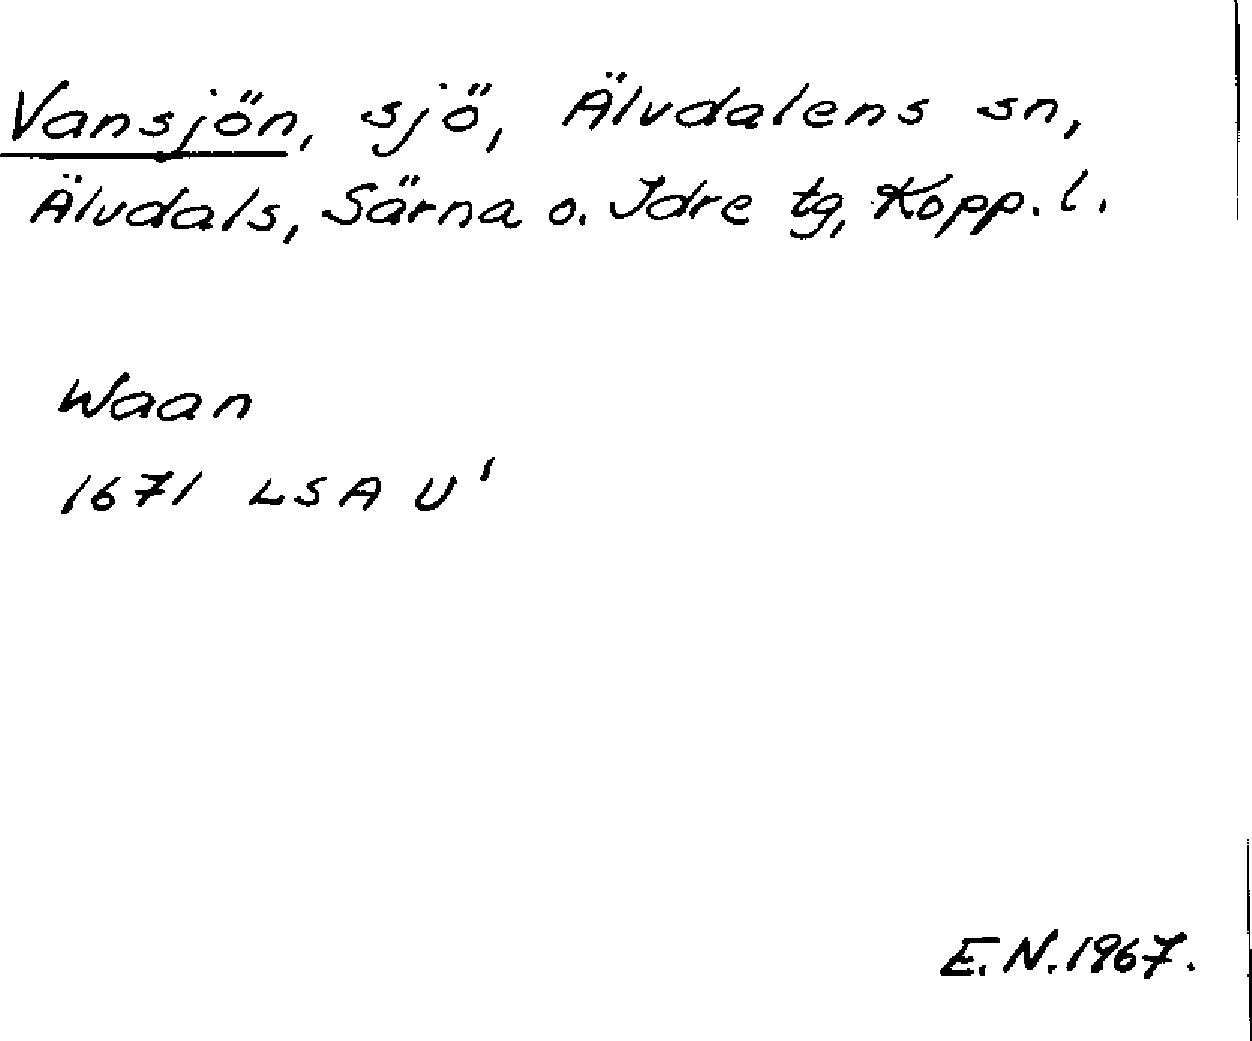 Vansjön, sjö, Älvdalens sn,
Älvdals, Särna o. Idre tg, Kopp. l.
Waan
1671 LSA U¹
E.N. 1967.